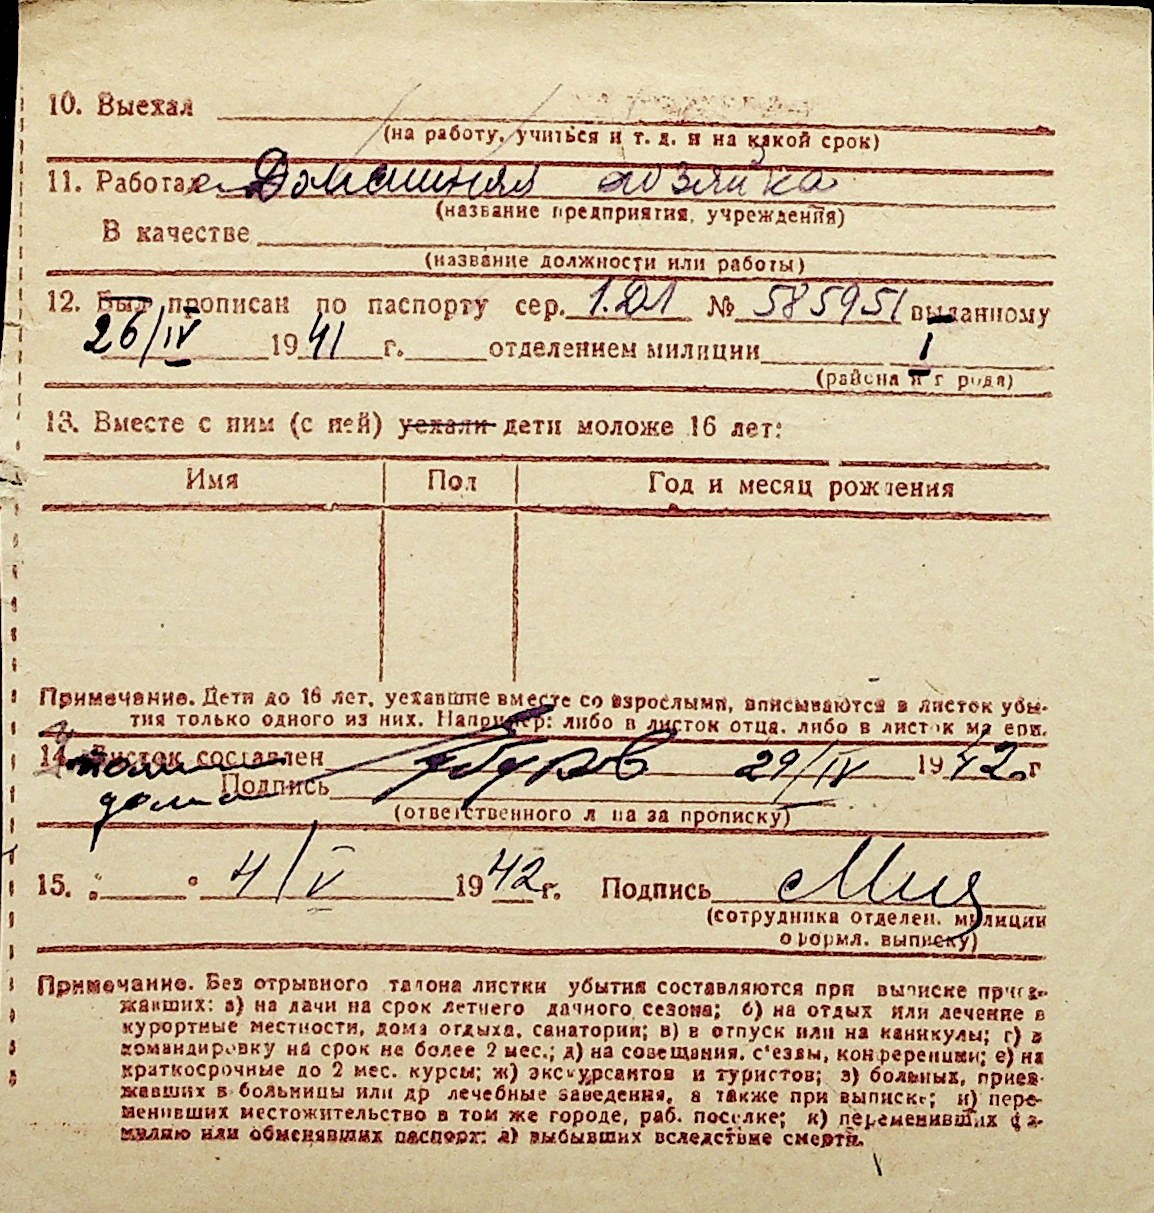 10. Выехал
(на работу, учиться и т. д. и на какой срок)
11. Работал Домашняя хозяйка
(название предприятия, учреждения)
В качестве
(название должности или работы)
12. Был прописан по паспорту сер. 1.ДЛ № 585951 выданному
26/IV 1941 г. отделением милиции I
(района и города)
13. Вместе с ним (с ней) уехали дети моложе 16 лет:
Имя Пол Год и месяц рождения
Примечание. Дети до 16 лет, уехавшие вместе со взрослыми, вписываются в листок убы-
тия только одного из них. Например: либо в листок отца, либо в листок матери.
14. Листок составлен 29/IV 1942 г
Подпись
(ответственного лица за прописку)
15. „ “ 4/V 1942 г. Подпись
(сотрудника отделен. милиции
оформл. выписку)
Примечание. Без отрывного талона листки убытия составляются при выписке приез-
жавших: а) на дачи на срок летнего дачного сезона; б) на отдых или лечение в
курортные местности, дома отдыха, санатории; в) в отпуск или на каникулы; г) в
командировку на срок не более 2 мес.; д) на совещания, с'езды, конференции; е) на
краткосрочные до 2 мес. курсы; ж) экскурсантов и туристов; з) больных, приез-
жавших в больницы или др лечебные заведения, а также при выписке; и) пере-
менивших местожительство в том же городе, раб. поселке; к) переменивших фа-
милию или обменявших паспорт; л) выбывших вследствие смерти.